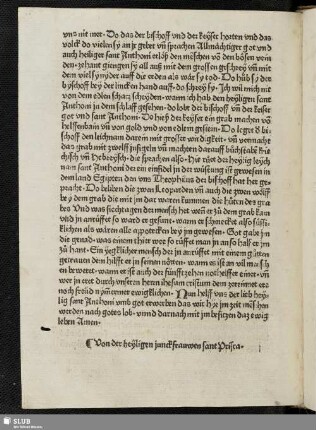 vns nit wer· Do das der bischoff vnd der keyser horten vnd das
volck do vielen sy an jr gebet vñ sprachen Allmächtiger got vnd
auch heiliger sant Anthoni erlöß den mēschen vō den bösen vein
den· zehant giengen sy all auß mit dem grossen geschrey vñ mit
dem viel sy nyder auff die erden als wär sy tod· Do hůb sy der
bischoff bey der lincken hand auff· do schrey sy· Ich wil mich nit
von dem edlen schatz scheyden· wann ich hab den heyligen sant
Anthoni ja dem schlaff gesehen· do lobt der bischoff vñ der keiser
got vnd sant Anthoni· Do hieß der keyser ein grab machen vō
helffenbain vñ von gold vnd von edlem gestein· Do leget d bi
schoff den leichnam darein mit grosser wirdigkeit· vñ vermacht
das grab mit zwölff jnsigeln vñ machten darauff bůchstabē krie
chisch vñ Hebreysch· die sprachen also· Hie růet der heylig leych
nam sant Anthoni der ein einsidel in der wüstung ist gewesen in
dem land Egipten den von Theophilus der bischoff hat her ge
pracht· Do beliben die zwen leoparden vñ auch die zwen wölff
bey dem grab die mit jm dar waren kummen die hüten des gra
bes Vnd was siechtagen der mensch het wen er zů dem grab kam
vnd jn anrüffet so ward er gesunt· wann er schmecket also süssi
klichen als wären alle appotecken bey jm gewesen· Got gabe jm
die genad· was einem thier wee so rüffet man jn an so half er jm
zů hant· Ein yegklicher mensch der jn anrüffet mit einem gůtten
getrauen dem hilfft er in seinen nötten· wann es ist an vil mēschē
en beweret· wann er ist auch der fünffzehen nothelffer einer· vñ
wer jn eret durch vnseren herren ihesum cristum dem zerrinnet ee
noch freüd nymmer ewigklichen· Nun helff vns der lieb hey
lig sant Anthoni vmb got erwerben das wir hye jm zeit mēschen
werden nach gotes lob· vnnd darnach mit jm besitzen daz ewig
leben Amen·
Von der heyligen junckfrauwen sant Prisca·
SLUB